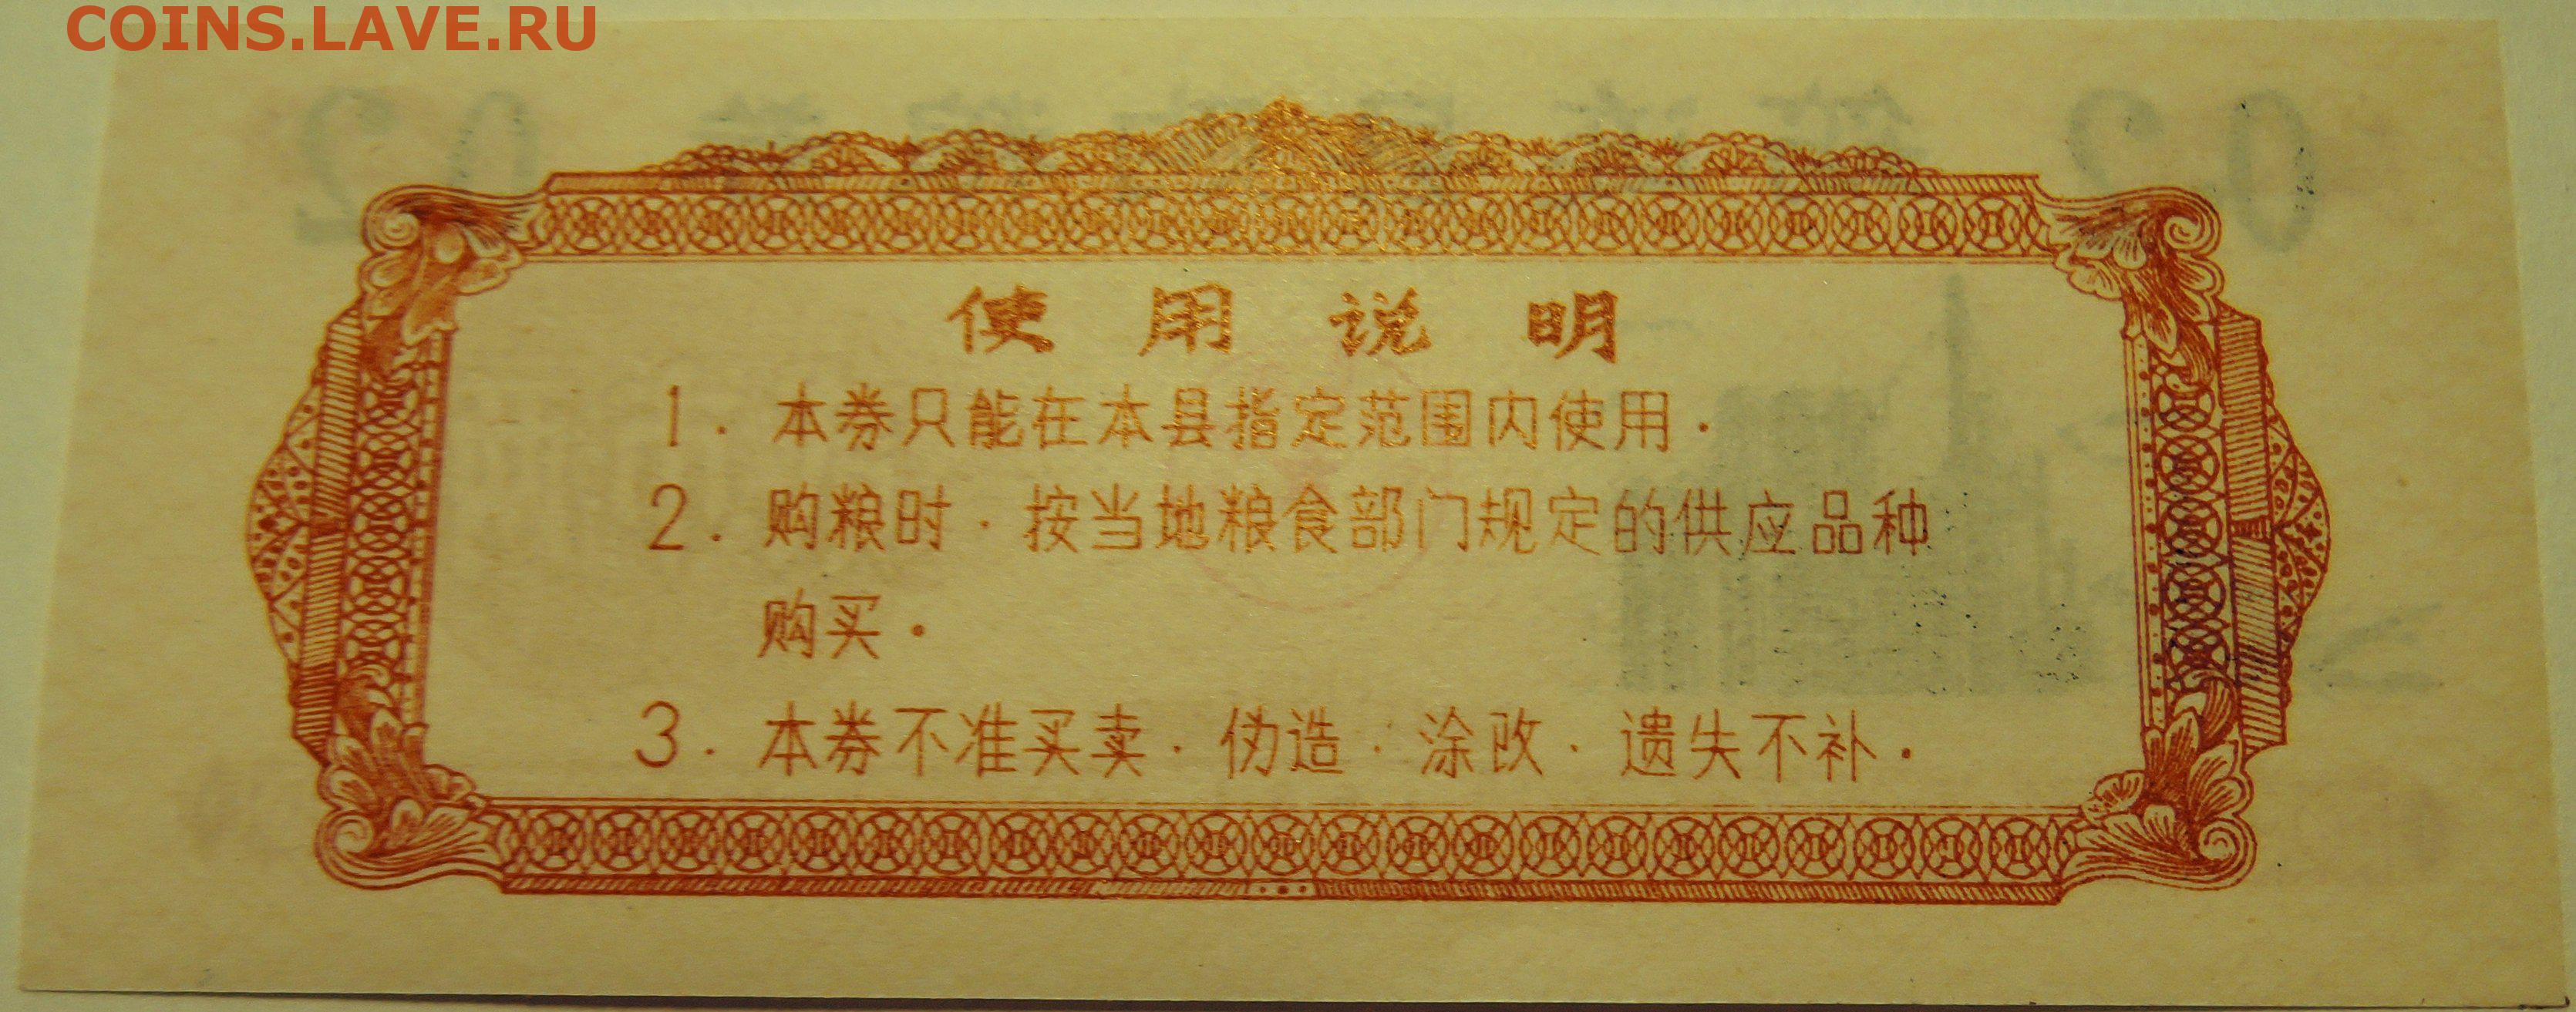 COINS.LAVE.RU
使用说明
1.本券只能在本县指定范围内使用.
2.购粮时·按当地粮食部门规定的供应品种
购买.
3.本券不准买卖·伪造·涂改·遗失不补.